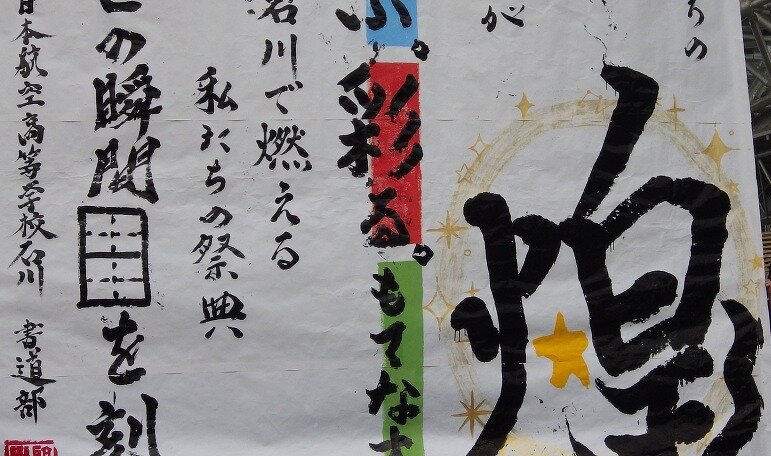 ちの
煌
が
ぶ。彩る。もてなす
石川で燃える
私たちの祭典
この瞬間
を刻
日本航空高等学校石川 書道部